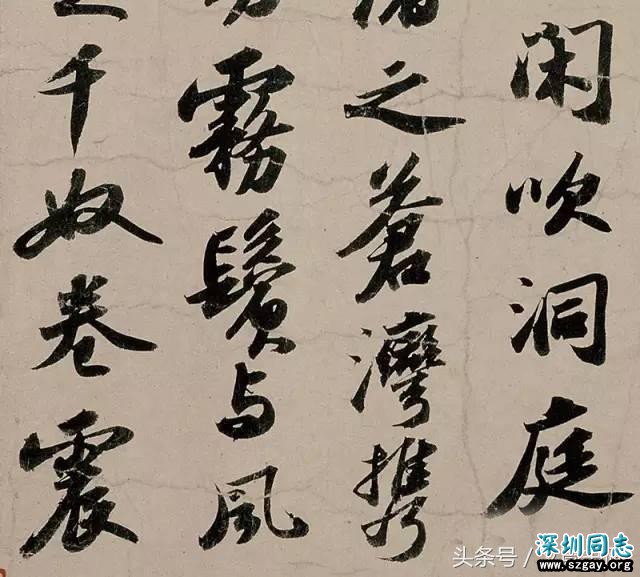 闲吹洞庭
之蒼灣携
霧鬢与風
千奴卷震
头条号
深圳同志
www.szgay.org